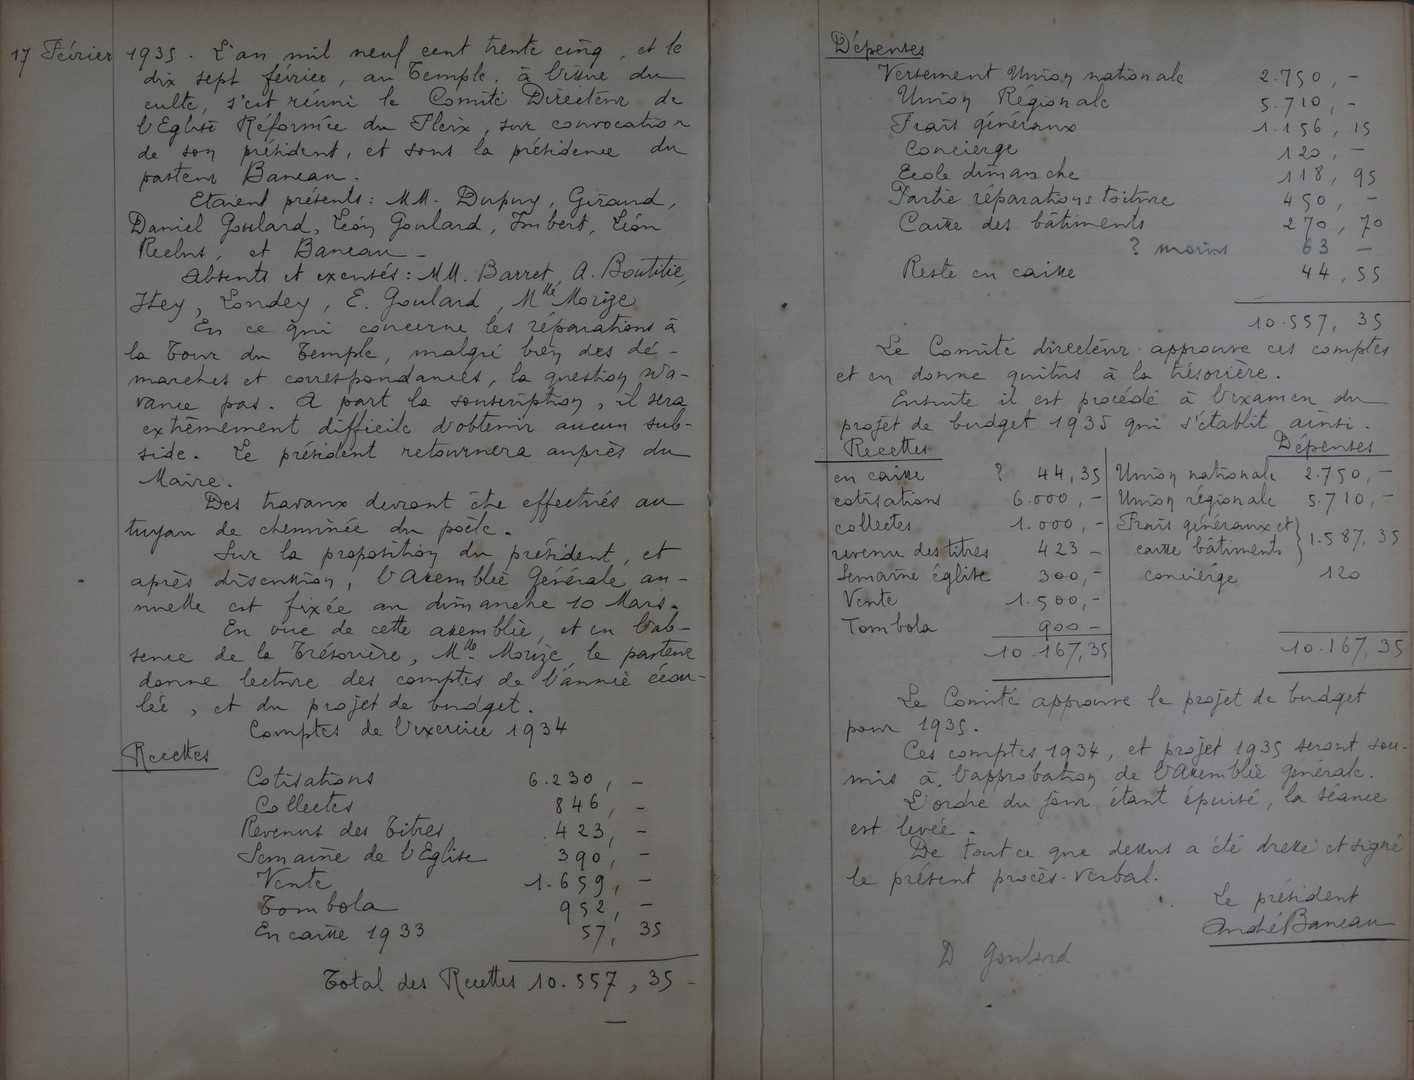 17 Février 1935. L'an mil neuf cent trente cinq, et le
dix sept février, au Temple, à l'issue du
culte, s'est réuni le Comité Directeur de
l'Eglise Réformée du Fleix, sur convocation
de son président, et sous la présidence du
pasteur Baneau.
Etaient présents : MM. Dupuy, Giraud,
Daniel Goulard, Léon Goulard, Imbert, Léon
Reclus, et Baneau -
Absents et excusés : MM. Barret, A. Boutitie,
Itey, Londey, E. Goulard, Mlle Morize
En ce qui concerne les réparations à
la Tour du Temple, malgré bien des dé-
marches et correspondances, la question n'a-
vance pas. A part la souscription, il sera
extrêmement difficile d'obtenir aucun sub-
side. Le président retournera auprès du
Maire.
Des travaux devront être effectués au
tuyau de cheminée du poêle.
Sur la proposition du président, et
après discussion, l'Assemblée Générale an-
nuelle est fixée au dimanche 10 Mars.
En vue de cette assemblée, et en l'ab-
sence de la Trésorière, Mlle Morize, le pasteur
donne lecture des comptes de l'année écou-
lée, et du projet de budget.
Comptes de l'exercice 1934
Recettes
Cotisations 6.230, -
Collectes 846, -
Revenus des Titres 423, -
Semaine de l'Eglise 390, -
Vente 1.659, -
Tombola 952, -
En caisse 1933 57, 35
Total des Recettes 10.557, 35 -
Dépenses
Versement Union nationale 2.750, -
Union Régionale 5.710, -
Frais généraux 1.156, 15
Concierge 120, -
Ecole dimanche 118, 95
Partie réparations toiture 450, -
Caisse des bâtiments 270, 70
? moins 63 -
Reste en caisse 44, 55
10.557, 35
Le Comité directeur approuve ces comptes
et en donne quitus à la trésorière.
Ensuite il est procédé à l'examen du
projet de budget 1935 qui s'établit ainsi.
Recettes Dépenses
en caisse ? 44,35 Union nationale 2.750, -
cotisations 6.000, - Union régionale 5.710, -
collectes 1.000, - Frais généraux et
revenu des titres 423 - caisse bâtiments } 1.587, 35
Semaine église 300, - concierge 120
Vente 1.500, -
Tombola 900 -
10.167,35 10.167, 35
Le Comité approuve le projet de budget
pour 1935.
Ces comptes 1934, et projet 1935 seront sou-
mis à l'approbation de l'Assemblée générale.
L'ordre du jour étant épuisé, la séance
est levée.
De tout ce que dessus a été dressé et signé
le présent procès-verbal.
Le président
André Baneau
D Goulard